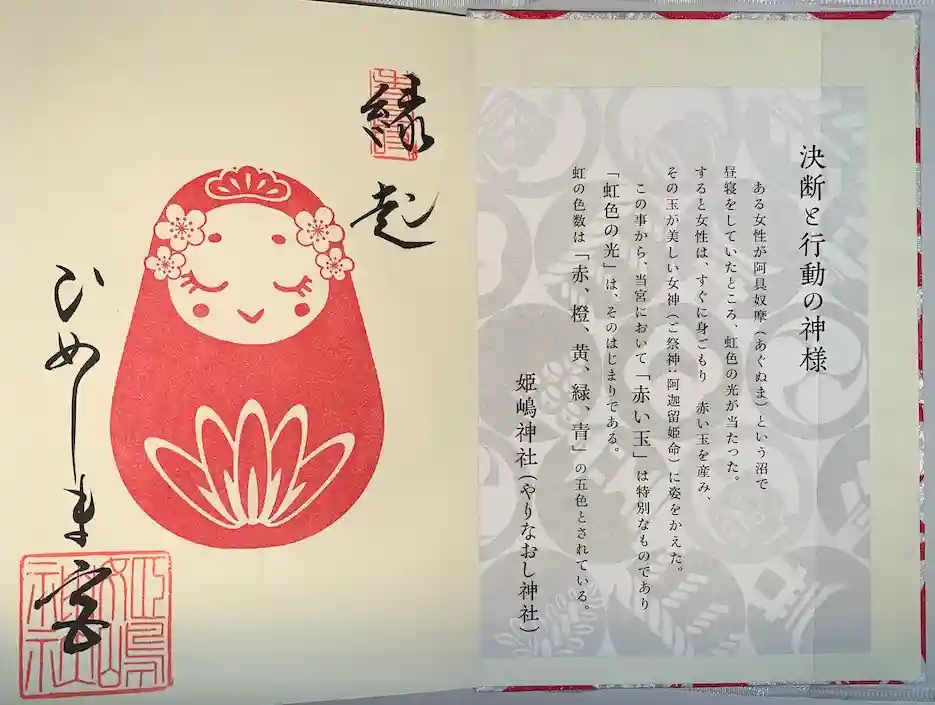 決断と行動の神様
ある女性が阿具奴摩(あぐぬま)という沼で
昼寝をしていたところ、虹色の光が当たった。
すると女性は、すぐに身ごもり　赤い玉を産み、
その玉が美しい女神(ご祭神:阿迦留姫命)に姿をかえた。
この事から、当宮において「赤い玉」は特別なものであり
「虹色の光」は、そのはじまりである。
虹の色数は「赤、橙、黄、緑、青」の五色とされている。
姫嶋神社(やりなおし神社)
縁起
ひめしま宮
姫嶋神社